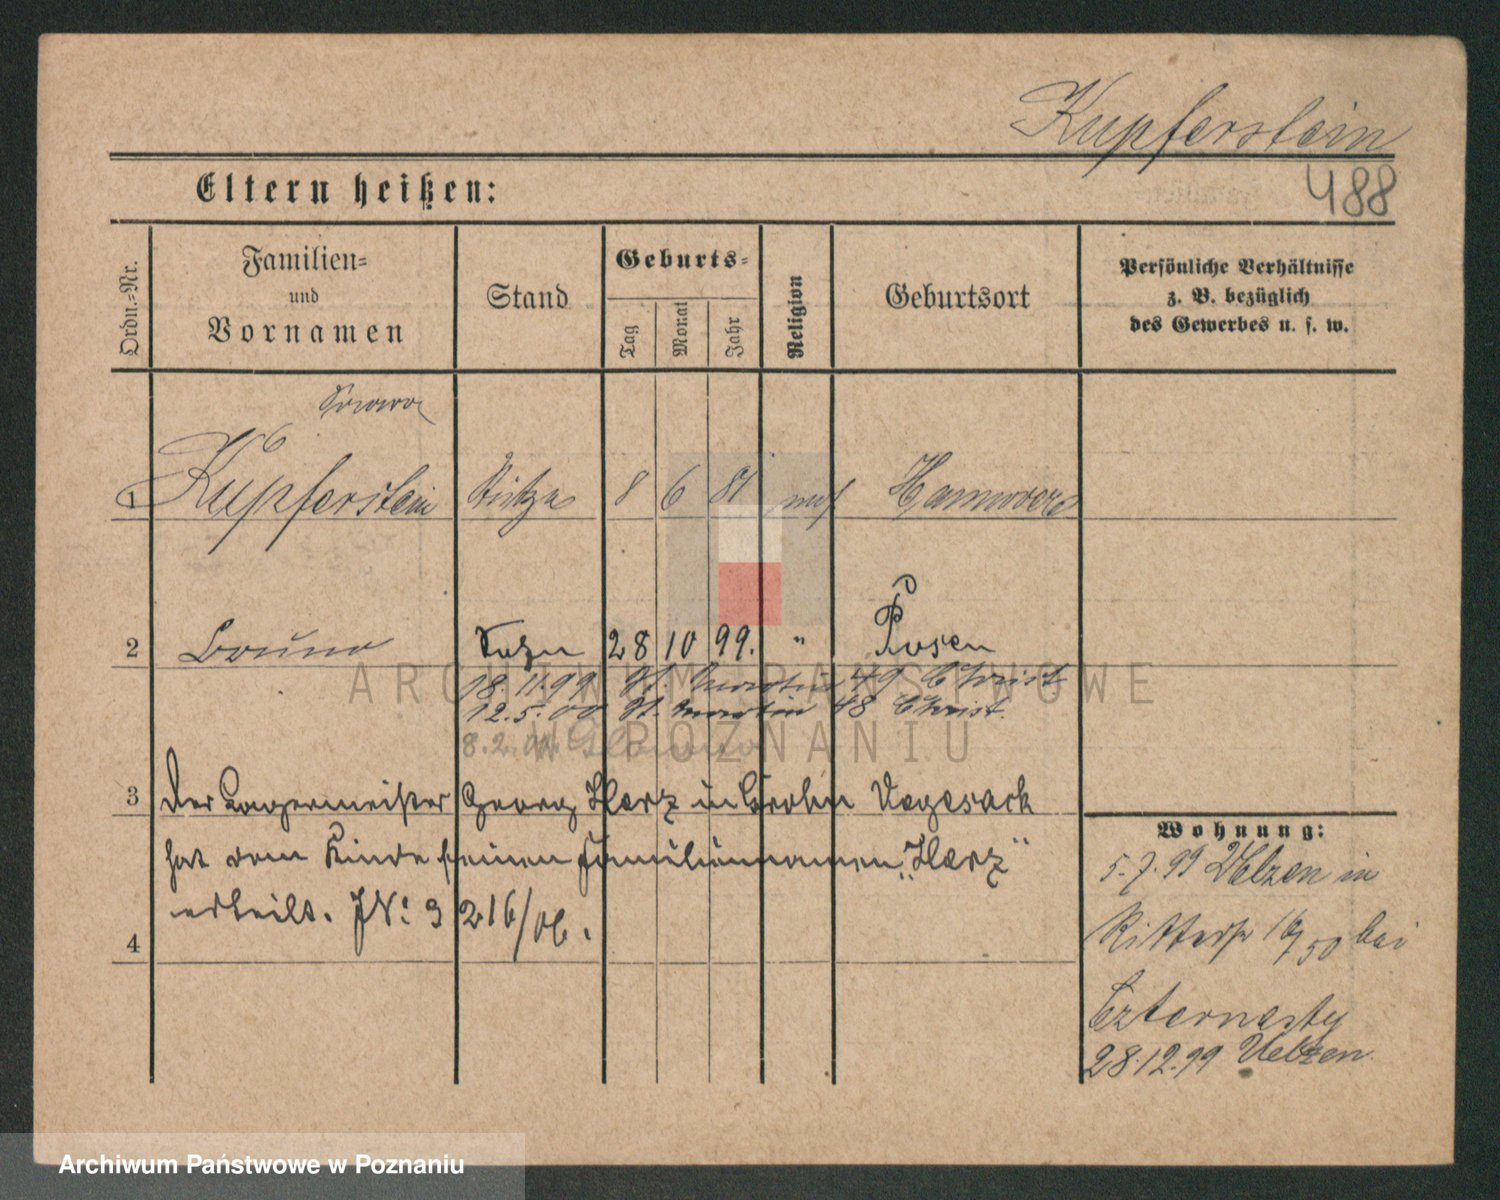 Kupferstein
488
Eltern heißen:
Ordn.=Nr.
Familien= und Vornamen
Stand
Geburts=
Tag
Monat
Jahr
Religion
Geburtsort
Persönliche Verhältnisse
z. B. bezüglich
des Gewerbes u. s. w.
1 Kupferstein Stütze 8 6 81 Hannover
2 Bruno Sohn 28 10 99. " Posen
18.11.99 St. Martin 49 Christ
12.5.00 St. Martin 48 Christ.
8.2.
3 Der Georg Herz in Grohn Vegesack
hat dem Kinde seinen Familiennamen „Herz"
erteilt. JNo: 3216/06.
4
Wohnung:
5.7.99 Uelzen in
Ritterstr 16/50 bei
28.12.99 Uelzen
ARCHIWUM PAŃSTWOWE
W POZNANIU
Archiwum Państwowe w Poznaniu